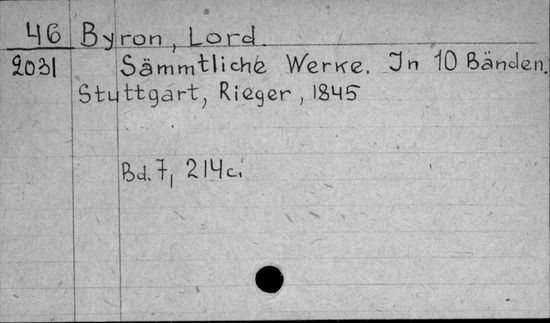 46 Byron, Lord.
2031 Sämmtliche Werke. In 10 Bänden.
Stuttgart, Rieger, 1845
Bd. 7, 214 c.